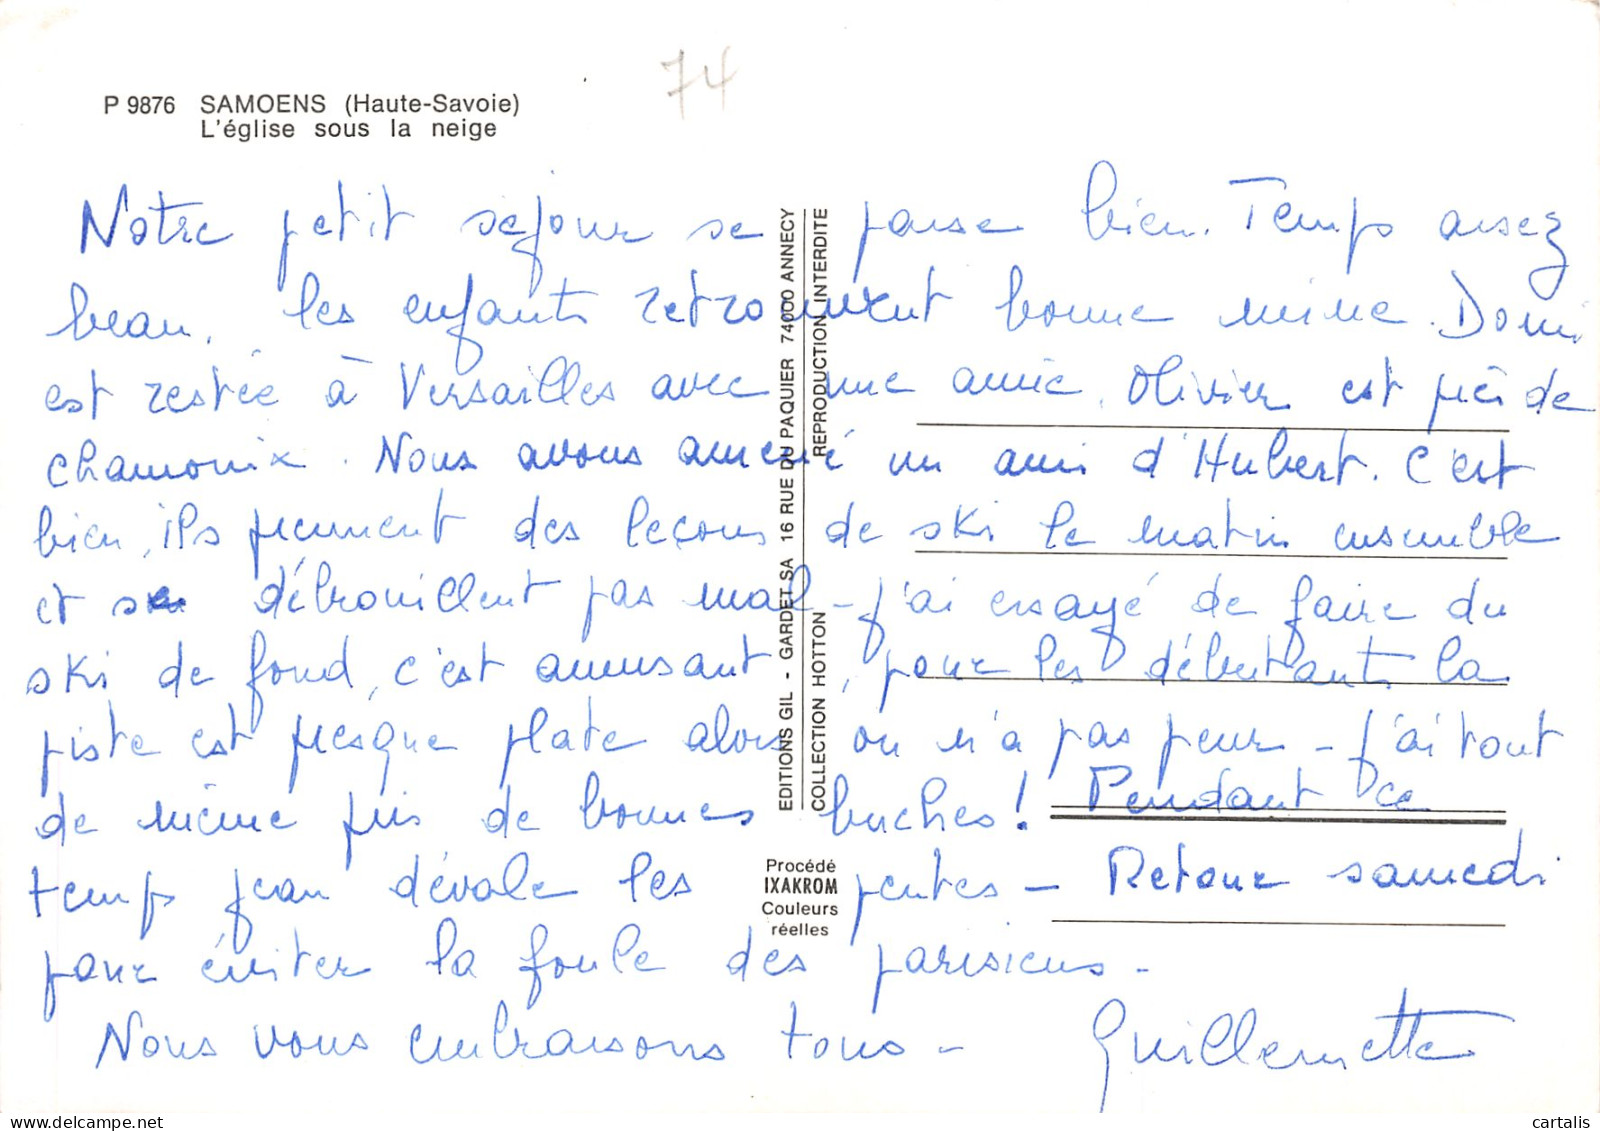 74
P 9876 SAMOENS (Haute-Savoie)
L'église sous la neige
Notre petit séjour se passe bien. Temps assez
beau, les enfants retrouvent bonne mine. Domi
est restée à Versailles avec une amie, Olivier est près de
chamonix. Nous avons amené un ami d'Hubert. C'est
bien, ils prennent des leçons de ski le matin ensemble
et se débrouillent pas mal - j'ai essayé de faire du
ski de fond, c'est amusant, pour les débutants la
piste est presque plate alors on n'a pas peur - j'ai tout
de même pris de bonnes buches! Pendant ce
temps jean dévale les pentes - Retour samedi
pour éviter la foule des parisiens -
Nous vous embrassons tous - Guillemette
EDITIONS GIL - GARDET SA 16 RUE DU PAQUIER 74000 ANNECY
COLLECTION HOTTON REPRODUCTION INTERDITE
Procédé
IXAKROM
Couleurs
réelles
cartalis